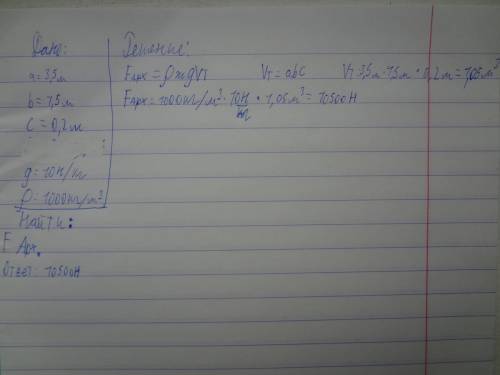 Дано:
a = 3,5 м
b = 1,5 м
c = 0,2 м
g = 10 Н/кг
ρ = 1000 кг/м³
Найти:
F Арх.
Ответ: 10500Н
Решение:
Fарх = ρж g Vт Vт = abc Vт 3,5 м · 1,5 м · 0,2 м = 1,05 м³
Fарх = 1000 кг/м³ · 10 Н/кг · 1,05 м³ = 10500Н